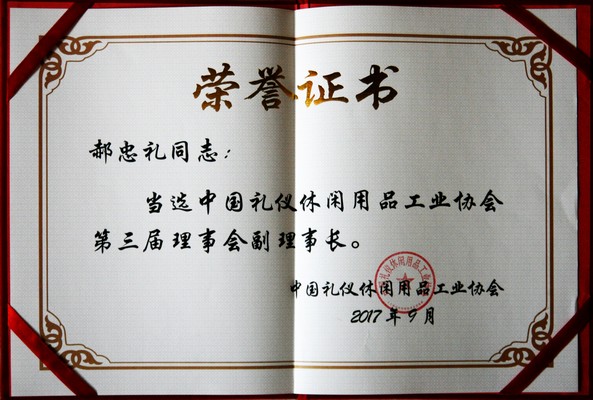 荣誉证书
郝忠礼同志：
当选中国礼仪休闲用品工业协会
第三届理事会副理事长。
中国礼仪休闲用品工业协会
2017年9月